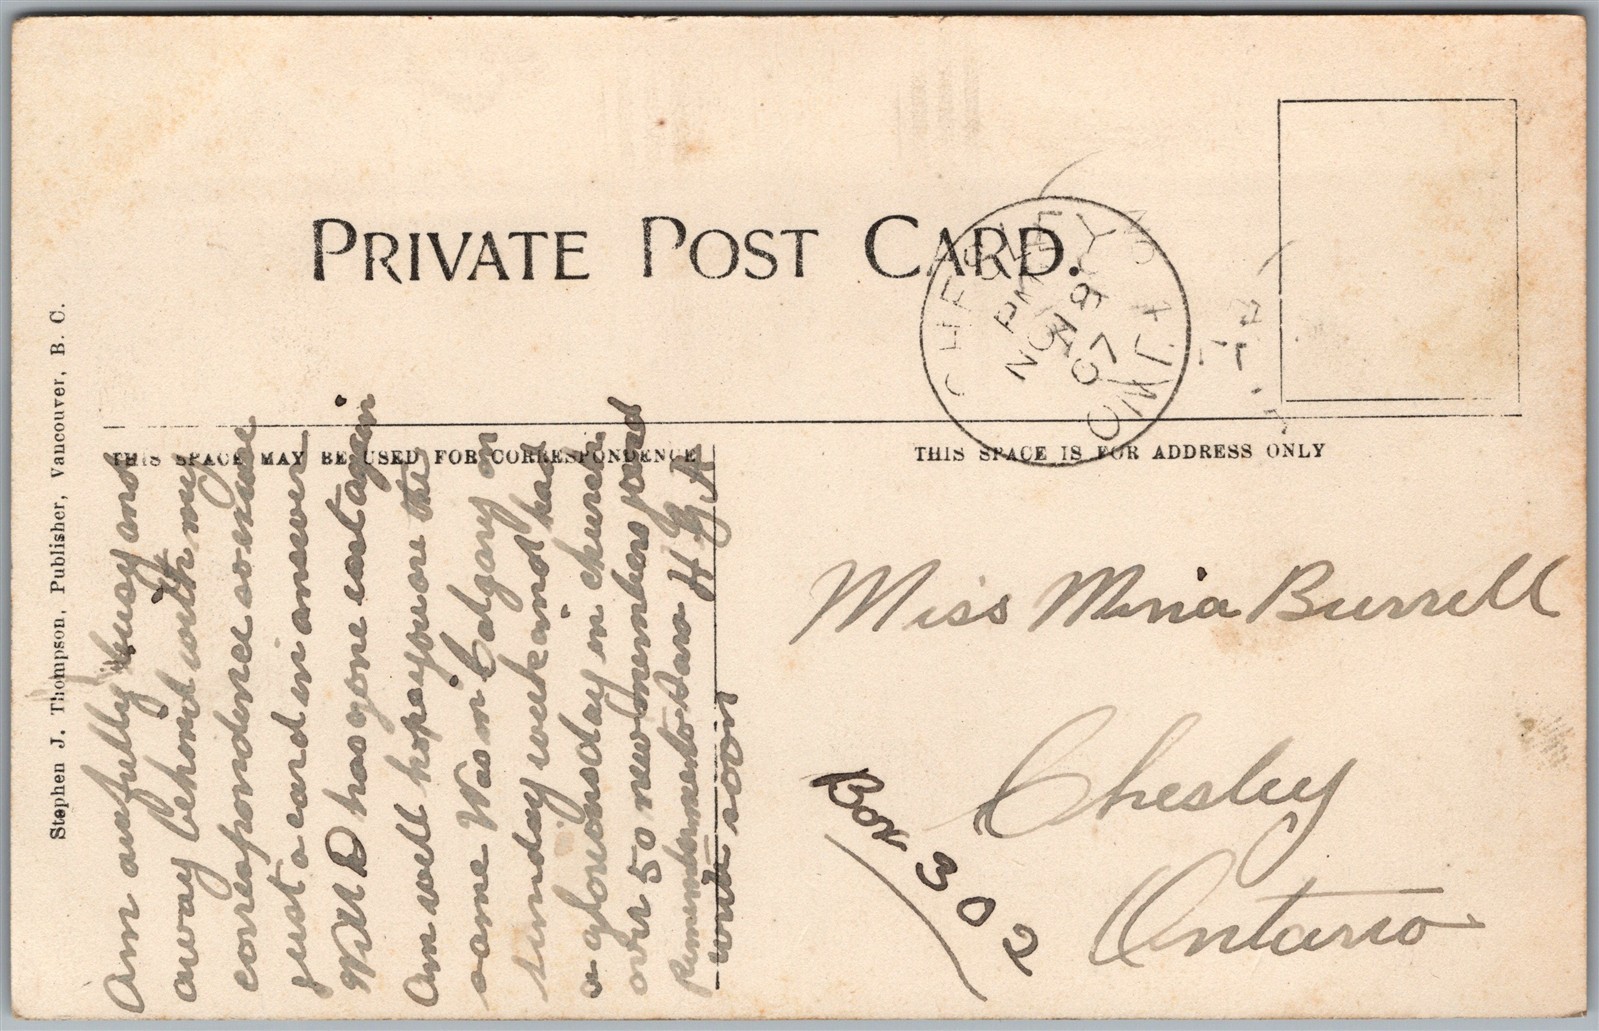 PRIVATE POST CARD.
CHESLEY ONT.
PM
NO 19
07
Stephen J. Thompson, Publisher, Vancouver, B. C.
THIS SPACE MAY BE USED FOR CORRESPONDENCE
THIS SPACE IS FOR ADDRESS ONLY
Am awfully busy and
away behind with my
correspondence so smre
just a card in answer
Will D has gone east again
Am well hope you are the
same Was in Calgary on
Sunday week and had
a glorious day in church
over 50 new members joined
Remember me to Sara H G A
write soon
Miss Mina Burrell
Chesley
Ontario
Box 302